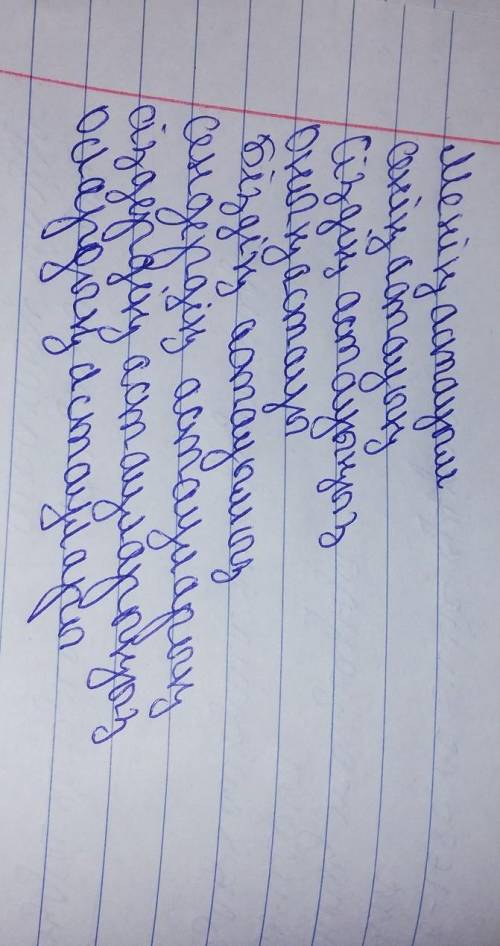 Менің астауым
сенің астауың
Сіздің астауыңыз
Оның астауы
Біздің астауымыз
Сендердің астауларың
Сіздердің астауларыңыз
Олардың астаулары